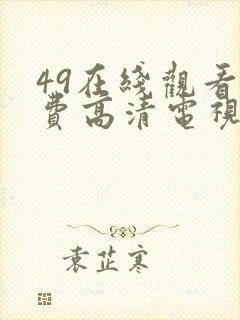 49在綫觀看
費高清電視
袁芷寒